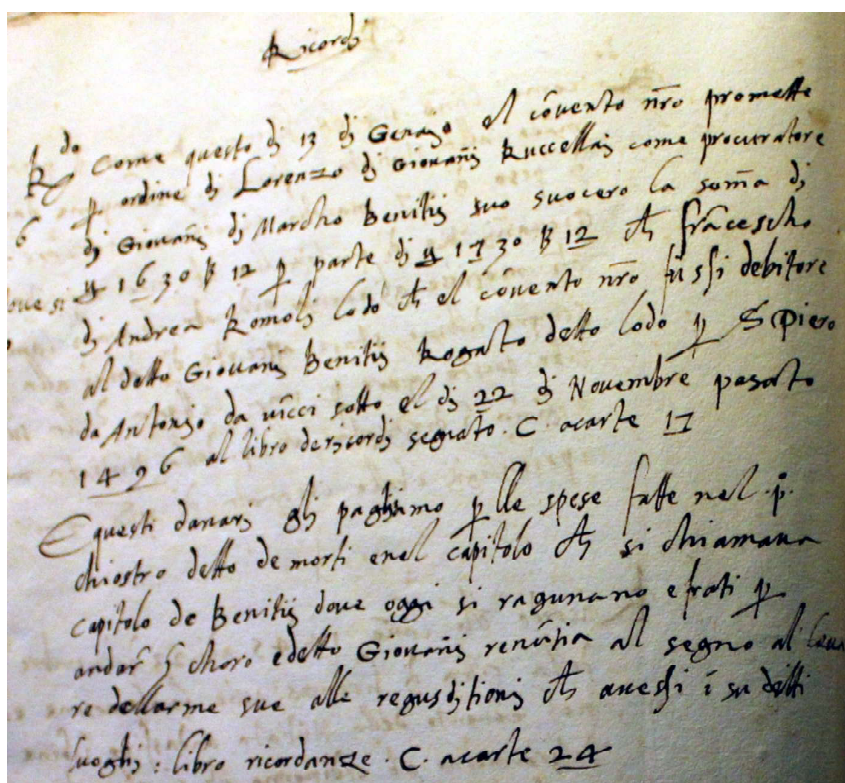 Ricordi
R.do Come questo di 13 di Genajo el cōvento nr̄o promette
6 p ordine di Lorenzo di Giovanni Ruccellaj come procuratore
di Giovanj di Marcho Benitij suo suocero la som̄a di
1630 ß 12 p parte di 1730 ß 12 ch frācescho
di Andrea Romolj lodò ch el cōvento nr̄o fussi debitore
al detto Giovanj Benitij Rogato detto lodo p S Piero
da Antonjo da vi̅cci sotto el di 22 di Novembre pasato
1496 al libro dericordj segnato . C . acarte 17
E questi danarj gli paghiamo p lle spese fatte nel . p.o
chiostro detto de morti enel capitolo ch si chiamava
capitolo de Benitij dove oggi si ragunano efrati p
andar̄ ī choro edetto Giovanj renūtia al segno al leva
re dellarme sue alle regusditionj ch avessi ī su detti
luoghi : libro ricordanze . C . acarte 24